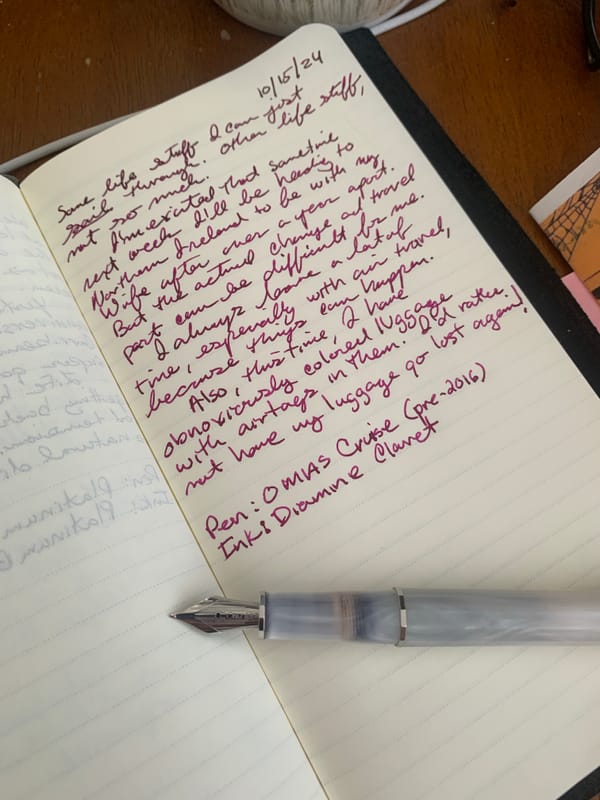 10/15/24
Some life stuff I can just
sail through. Other life stuff,
not so much.
I'm excited that sometime
next week I'll be heading to
Northern Ireland to be with my
Wife after over a year apart.
But the actual change and travel
part can be difficult for me.
I always leave a lot of
time, especially with air travel,
because things can happen.
Also, this time, I have
obnoxiously colored luggage
with airtags in them. I'd rather
not have my luggage go lost again!
Pen: OMAS Cruise (pre-2016)
Ink: Diamine Claret